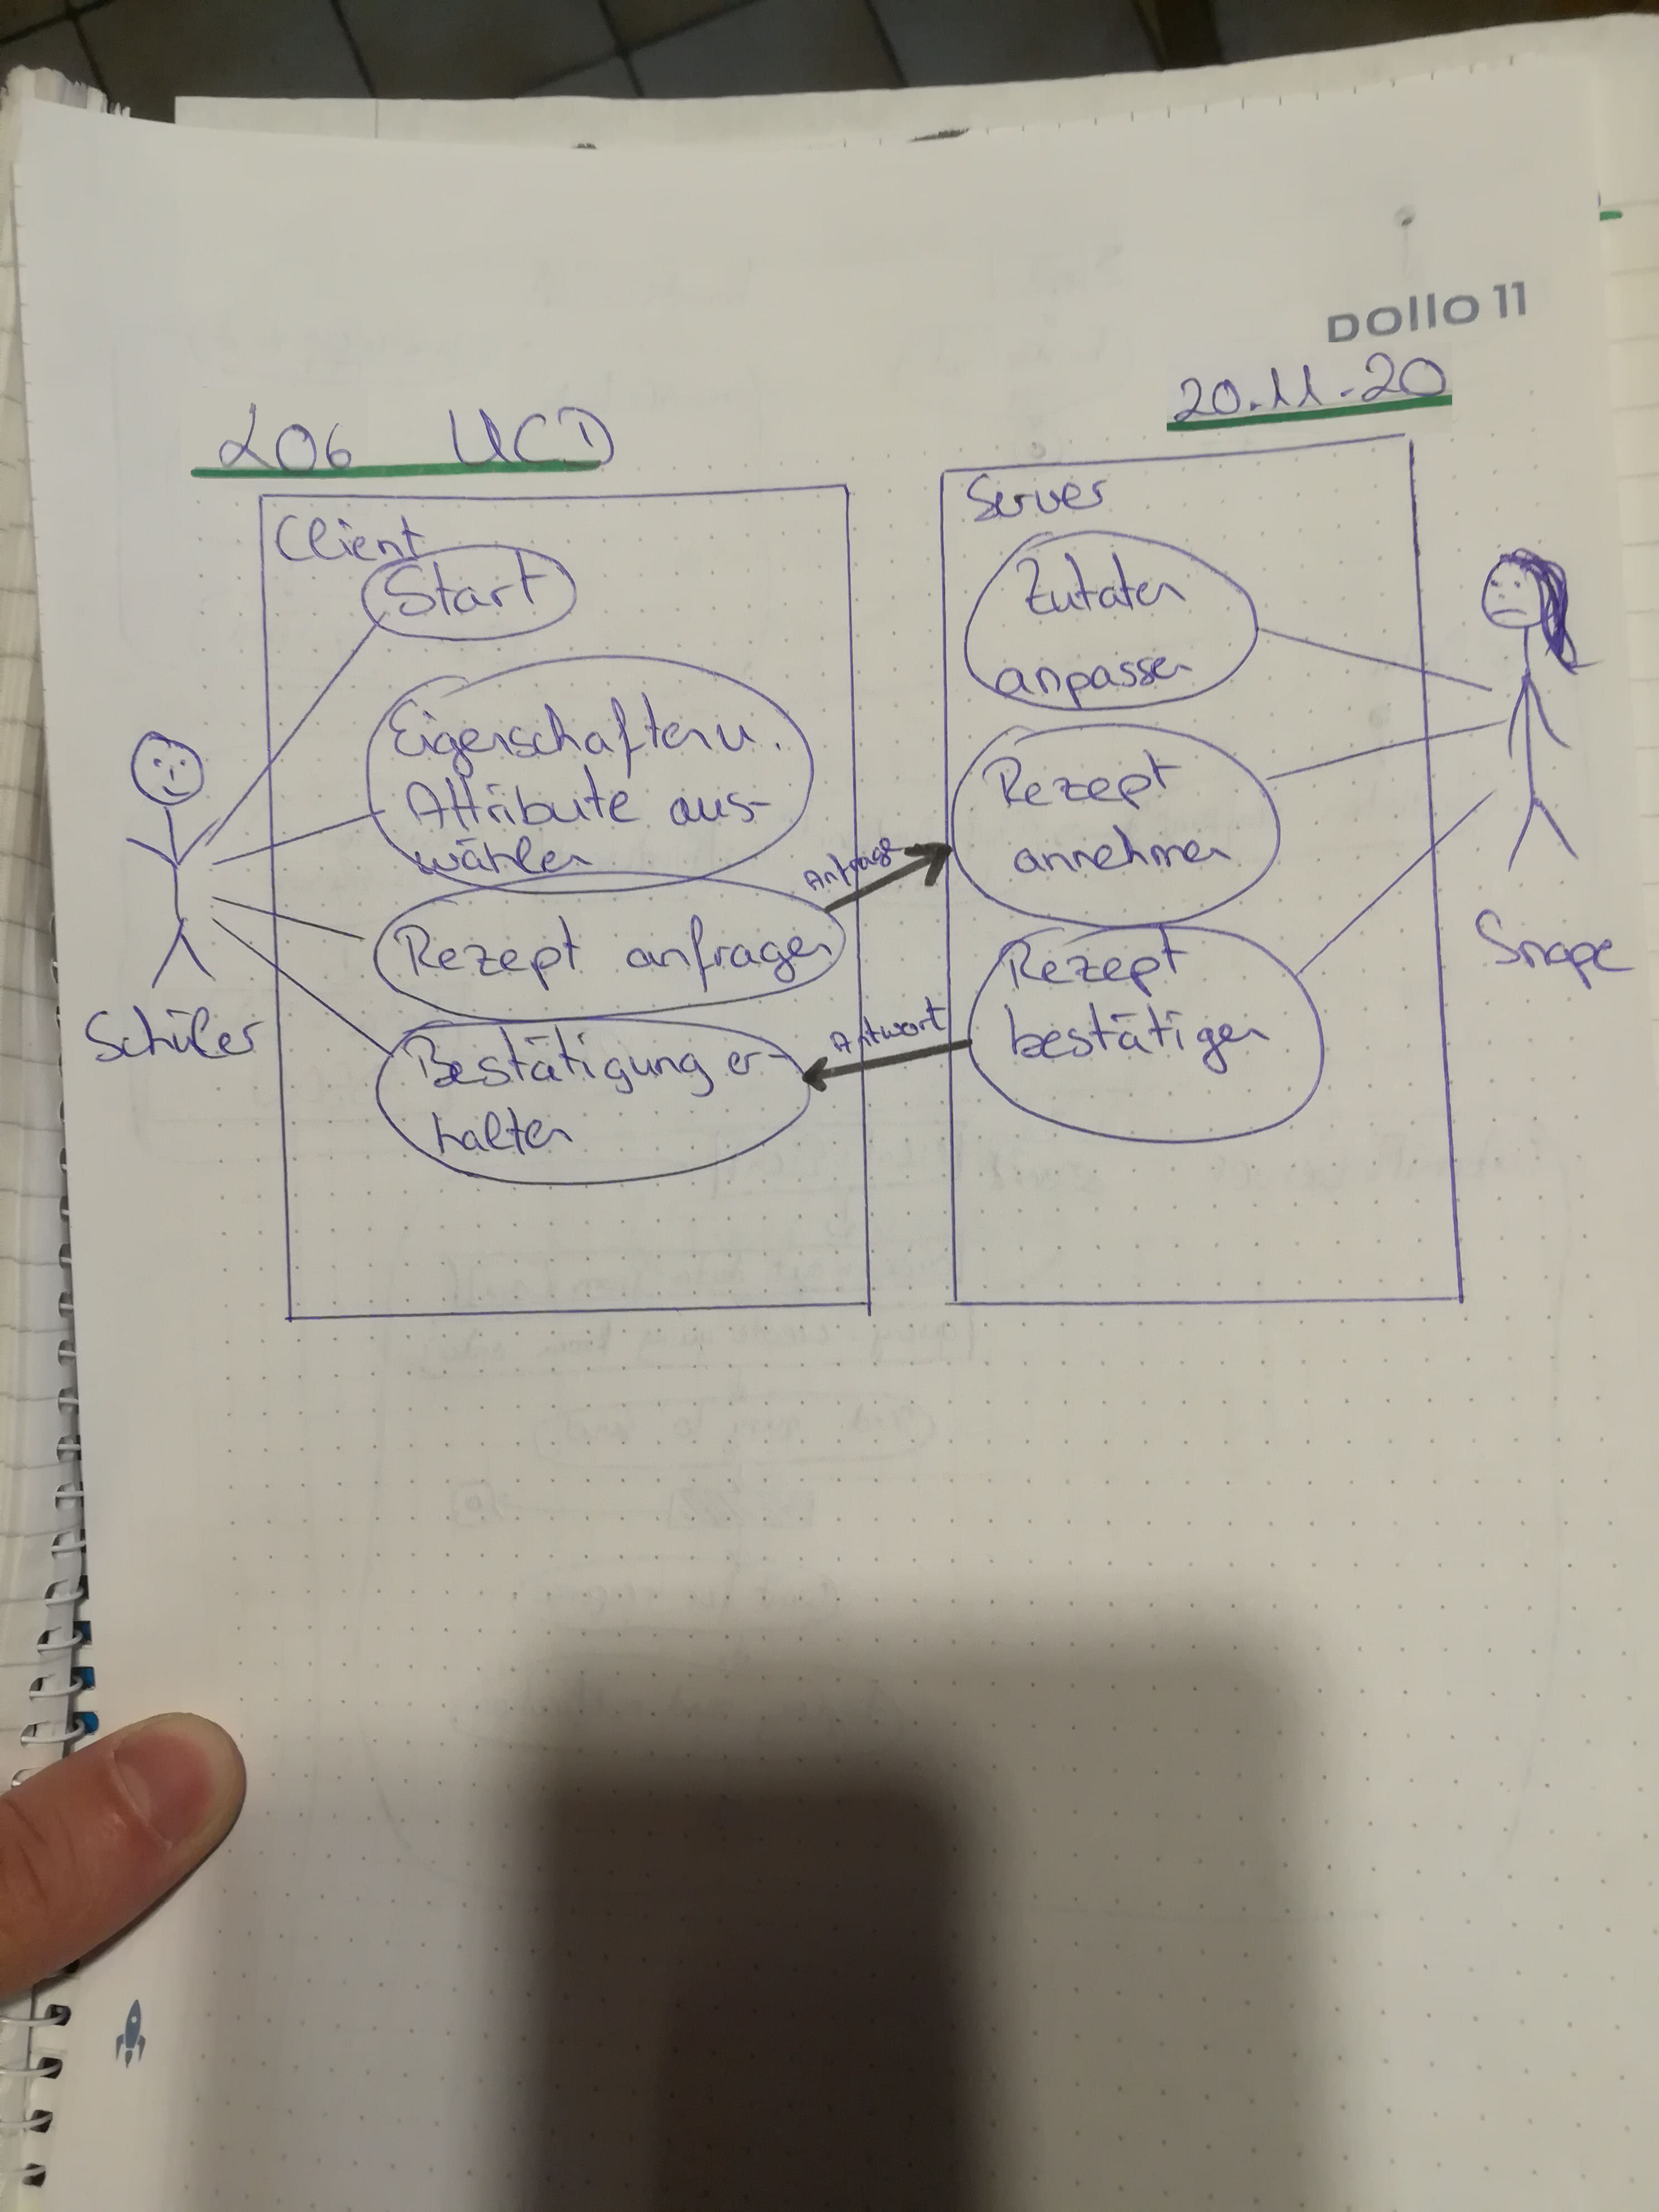 DOllO 11
20.11.20
LO6 UCD
Client
Start
Eigenschaften u.
Attribute aus-
wählen
Rezept anfragen
Bestätigung er-
halten
Schüler
Anfrage
Antwort
Server
Zutaten
anpassen
Rezept
annehmen
Rezept
bestätigen
Snape